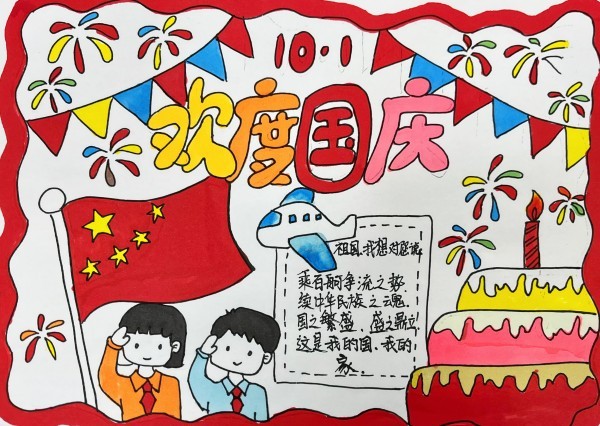 10.1
欢度国庆
祖国,我想对您说:
乘百舸争流之势
续中华民族之魂
国之繁盛,盛之鼎立
这是我的国,我的
家.